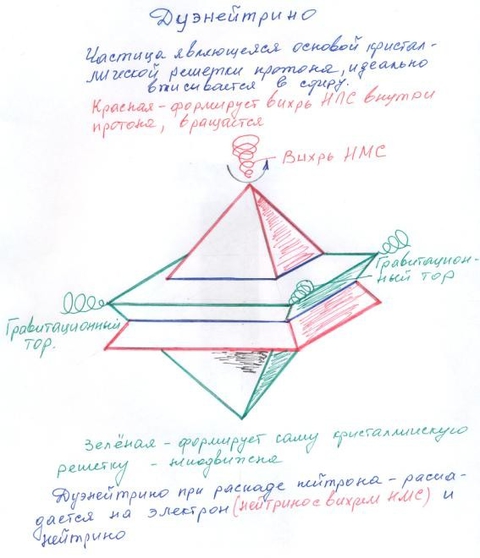 Дуэнейтрино
Частица являющееся основой кристал-
лической решетки протона, идеально
вписывается в сферу.
Красная – формирует вихрь НПС внутри
протона, вращается
Вихрь НМС
Гравитацион-
ный тор
Гравитационный
тор.
Зелёная – формирует саму кристаллическую
решетку – неподвижна
Дуэнейтрино при распаде нейтрона – распа-
дается на электрон (нейтрино с вихрем НМС) и
нейтрино